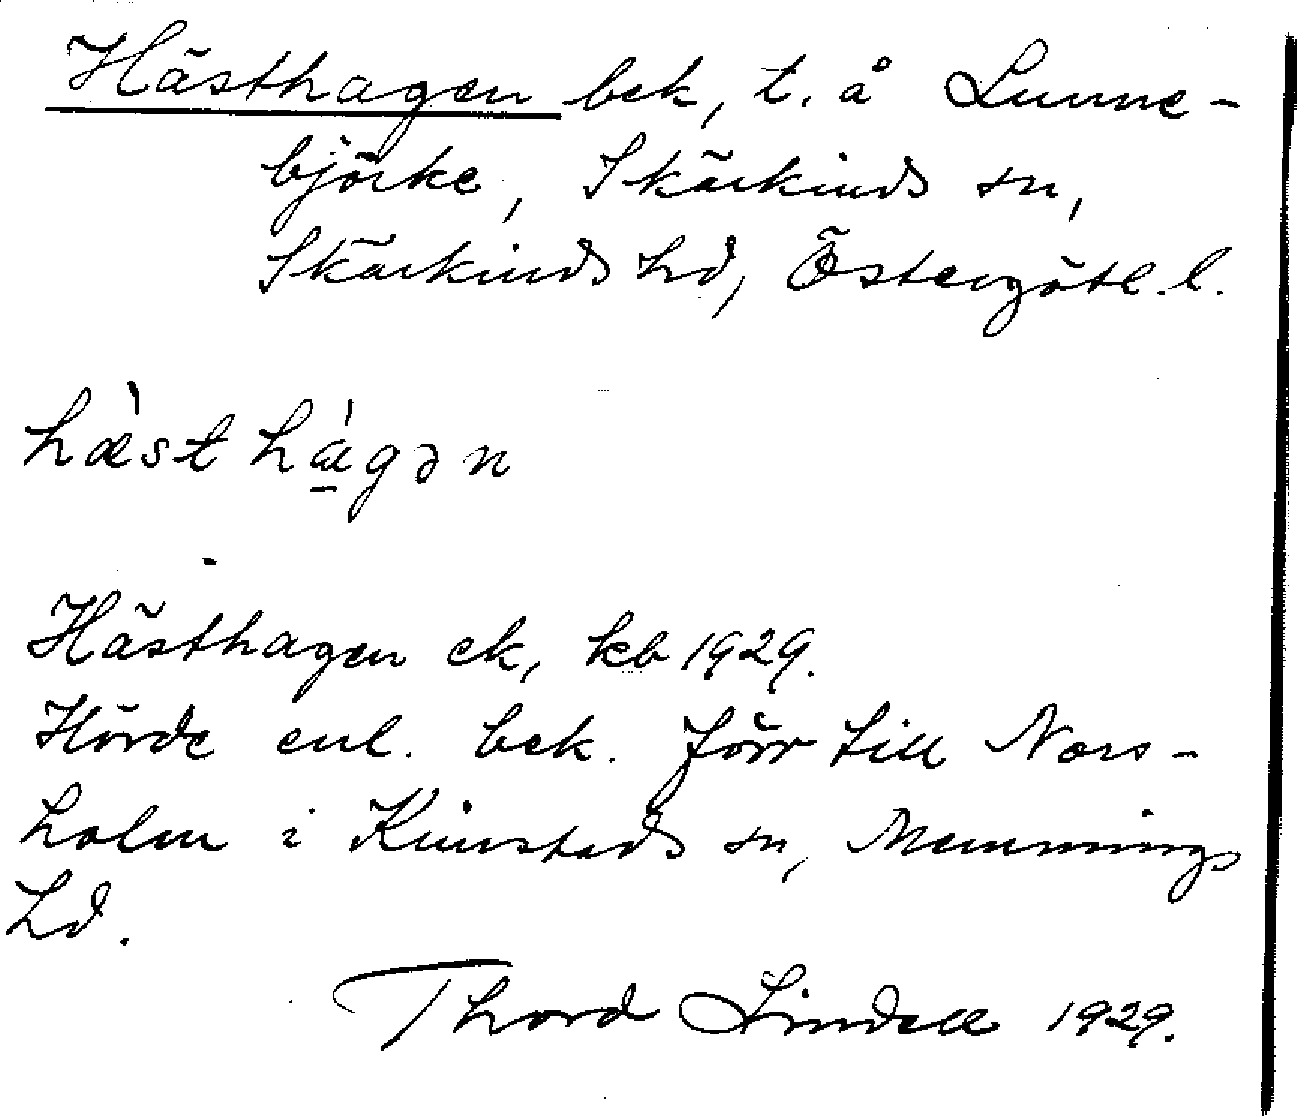 Hästhagen bek, t. å Lunne-
björke, Skärkinds sn,
Skärkinds hd, Östergötl. l.
hæ̀st hǽgən
Hästhagen ek, kb 1929.
Hörde enl. bek. förr till Nors-
holm i Kimstads sn, Memmings
hd.
Thord Lindell 1929.